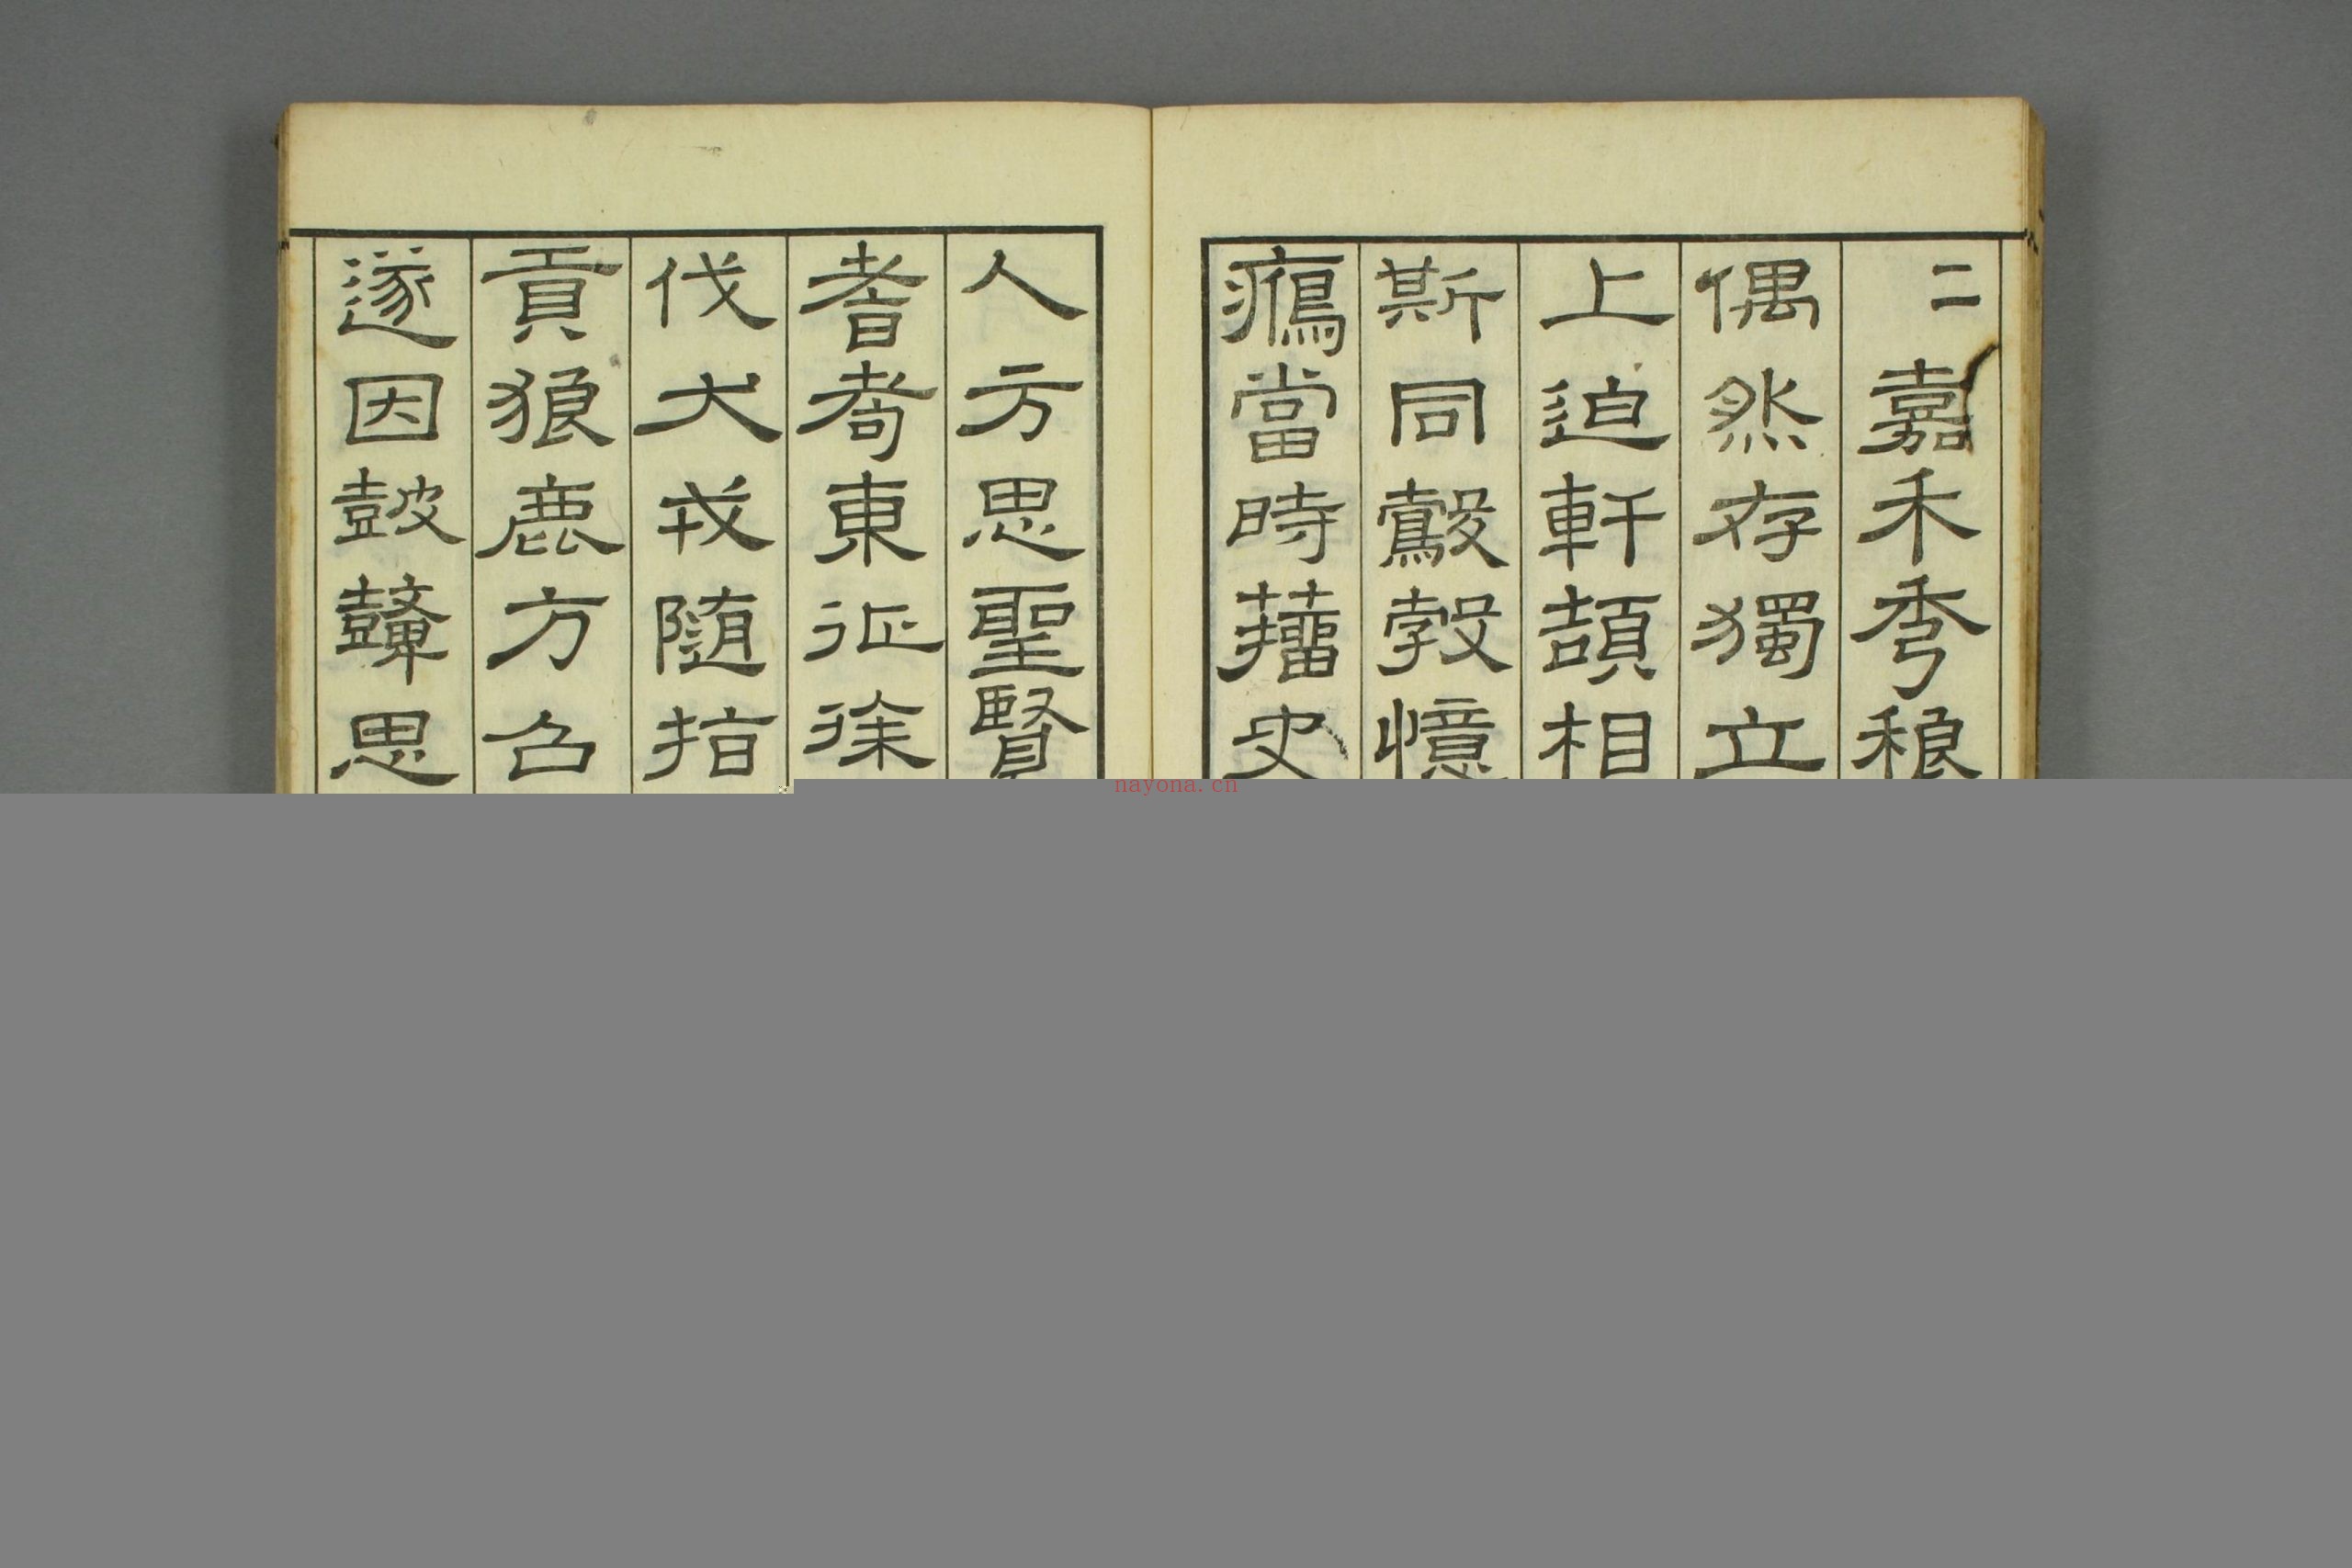 二嘉禾秀稂
偶然存獨立
上追軒頡相
斯同鷇㝅憶
鴈當時籀史
人方思聖賢
耆耇東征徐
伐犬戎隨指
貢狼鹿方召
遂因鼓鼙思
nayona.cn